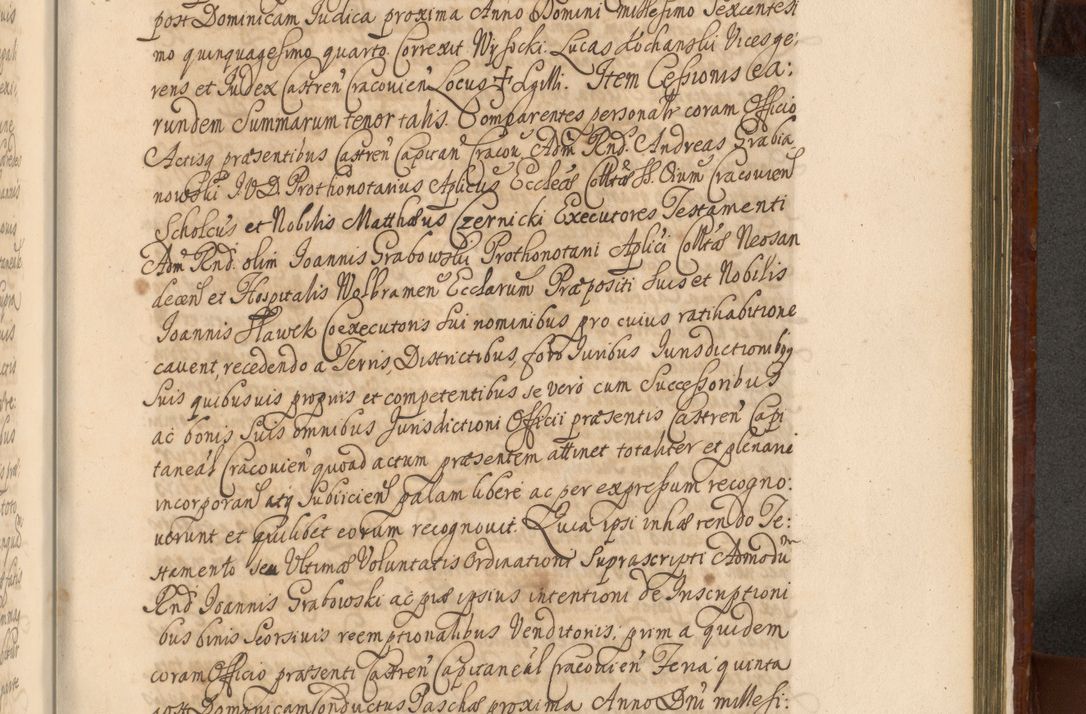 post Dominicam Judica proxima Anno Domini millesimo Sexcentesi
mo quinquagesimo quarto. Correxit Wysocki. Lucas Kochanski Vicesge:
rens et Judex Castren Cracovien Locus ✝ Sgilli. Item Cessionis Ea:
rundem Summarum tenor talis. Comparentes personalr coram Officio
Actisq præsentibus Castren Capitan Cracou, Adm Rnd. Andreas Grabia
nowski J V D Prothonotarius Aplicus Eccleæ Colltæ SS. Oium Cracovien
Scholcus et Nobilis Matthæus Czernicki Executores Testamenti
Adm Rnd. olim Joannis Grabowski Prothonotari Aplici Colltæ Neosan
decen et Hospitalis Wolbramen Ecclarum Præpositi suis et Nobilis
Joannis Sławek Coexecutoris sui nominibus pro cuius ratihabitione
cavent, recedendo a Terris, Districtibus, foro Juribus Jurisdictionibq
suis quibusvis propriis et competentibus se vero cum Successoribus
ac bonis suis omnibus Jurisdictioni Officii præsentis Castren Capi
taneal Cracovien quoad actum præsentem attinet totaliter et plenarie
incorporan atq subiicien palam libere ac per expressum recogno:
verunt et quilibet eorum recognovit. Quia ipsi inhærendo Te:
stamento seu Ultimæ Voluntatis Ordinatione suprascripti Admodum
Rnd Joannis Grabowski ac piæ ipsius intentioni de Inscriptioni
bus binis seorsivis reemptionalibus Venditoris, prima quidem
coram Officio præsenti Castren Capitaneal Cracovien Feria quinta
post Dominicam Conductus Paschæ proxima Anno Dni millesi: